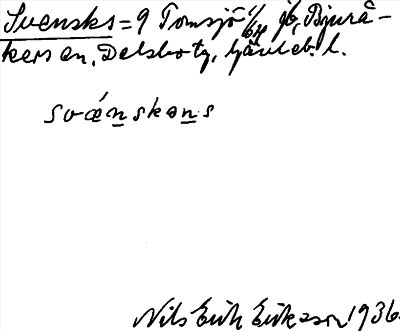 Svensks = 9 Tomsjö 1/64 jb, Bjurå-
kers sn, Delsbo tg, Gävleb. l.
svǽnskans
Nils Erik Eriksson 1936.